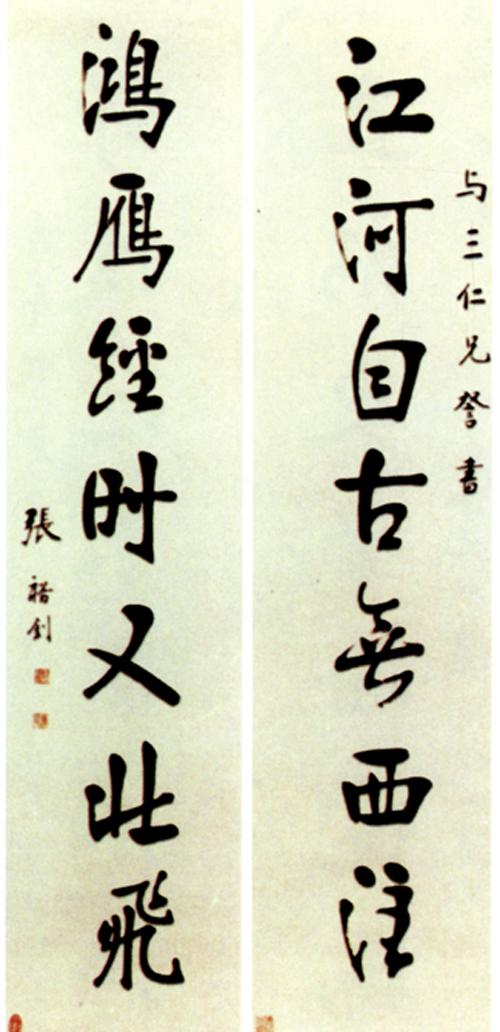 与三仁兄詧書
江河自古無西注
鴻鴈經時又北飛
張裕釗